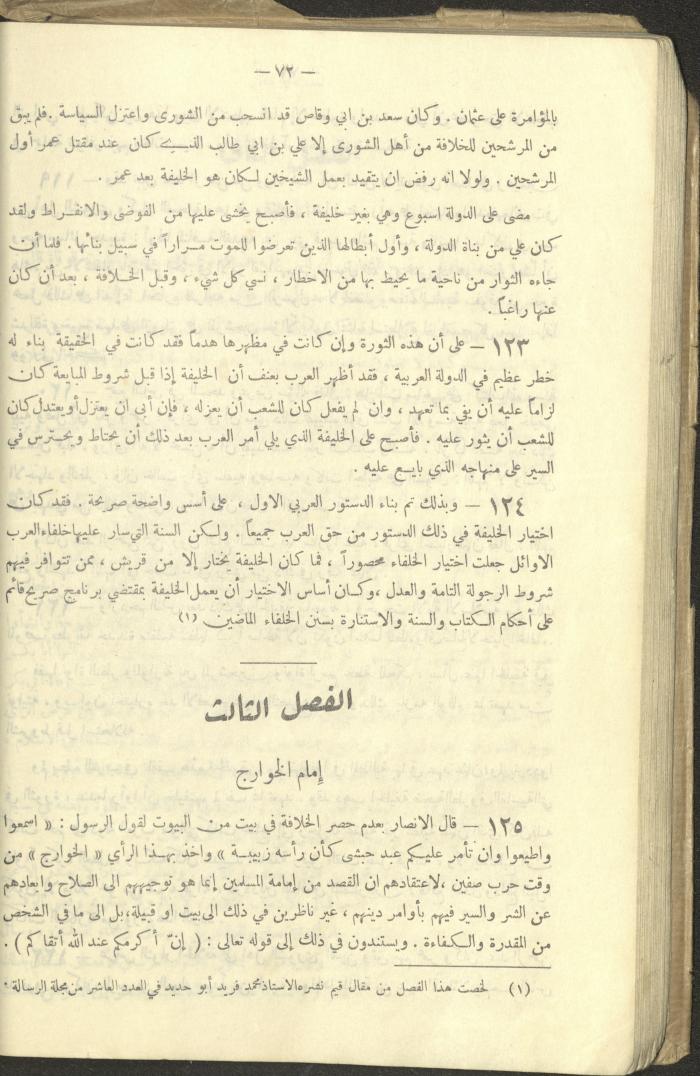 — ٧٢ —
بالمؤامرة على عثمان . وكان سعد بن ابي وقاص قد انسحب من الشورى واعتزل السياسة . فلم يبق
من المرشحين للخلافة من أهل الشورى إلا علي بن ابي طالب الذي كان عند مقتل عمر أول
المرشحين . ولولا انه رفض ان يتقيد بعمل الشيخين لكان هو الخليفة بعد عمر .
مضى على الدولة اسبوع وهي بغير خليفة ، فأصبح يخشى عليها من الفوضى والانفراط ولقد
كان علي من بناة الدولة ، وأول أبطالها الذين تعرضوا للموت مراراً في سبيل بنائها . فلما أن
جاءه الثوار من ناحية ما يحيط بها من الاخطار ، نسي كل شيء ، وقبل الخلافة ، بعد أن كان
عنها راغباً .
١٢٣ — على أن هذه الثورة وإن كانت في مظهرها هدماً فقد كانت في الحقيقة بناء له
خطر عظيم في الدولة العربية ، فقد أظهر العرب بعنف أن الخليفة إذا قبل شروط المبايعة كان
لزاماً عليه أن يفي بما تعهد ، وان لم يفعل كان للشعب أن يعزله ، فإن أبى ان يعتزل أو يعتدل كان
للشعب أن يثور عليه . فأصبح على الخليفة الذي يلي أمر العرب بعد ذلك أن يحتاط ويحترس في
السير على منهاجه الذي بايع عليه .
١٢٤ — وبذلك تم بناء الدستور العربي الاول ، على أسس واضحة صريحة . فقد كان
اختيار الخليفة في ذلك الدستور من حق العرب جميعاً . ولكن السنة التي سار عليها خلفاء العرب
الاوائل جعلت اختيار الخلفاء محصوراً ، فما كان الخليفة يختار إلا من قريش ، ممن تتوافر فيهم
شروط الرجولة التامة والعدل ، وكان أساس الاختيار أن يعمل الخليفة بمقتضي برنامج صريح قائم
على أحكام الكتاب والسنة والاستنارة بسنن الخلفاء الماضين (١)
الفصل الثالث
إمام الخوارج
١٢٥ — قال الانصار بعدم حصر الخلافة في بيت من البيوت لقول الرسول : « اسمعوا
واطيعوا وان تأمر عليكم عبد حبشى كأن رأسه زبيبة » واخذ بهذا الرأي « الخوارج » من
وقت حرب صفين ، لاعتقادهم ان القصد من إمامة المسلمين إنما هو توجيههم الى الصلاح وابعادهم
عن الشر والسير فيهم بأوامر دينهم ، غير ناظرين في ذلك الى بيت او قبيلة ، بل الى ما في الشخص
من المقدرة والكفاءة . ويستندون في ذلك إلى قوله تعالى : ( إنّ أكرمكم عند الله أتقاكم ) .
(١) لخصت هذا الفصل من مقال قيم نشره الاستاذ محمد فريد أبو حديد في العدد العاشر من مجلة الرسالة .